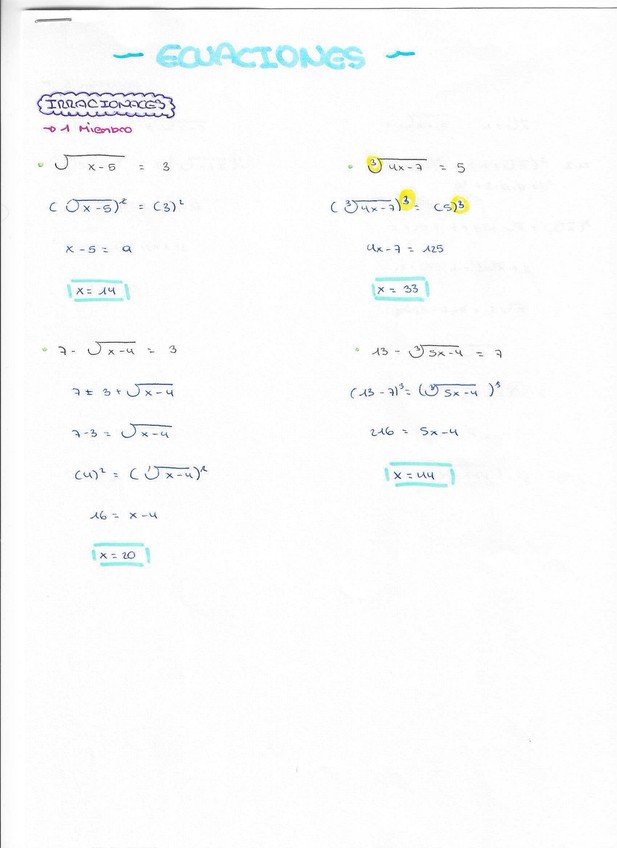 - ECUACIONES -
IRRACIONALES
→ 1 Miembro
• √(x-5) = 3
(√(x-5))² = (3)²
x-5 = 9
x = 14
• ∛(4x-7) = 5
(∛(4x-7))³ = (5)³
4x-7 = 125
x = 33
• 7 - √(x-4) = 3
7 = 3 + √(x-4)
7-3 = √(x-4)
(4)² = (√(x-4))²
16 = x-4
x = 20
• 13 - ∛(5x-4) = 7
(13-7)³ = (∛(5x-4))³
216 = 5x-4
x = 44